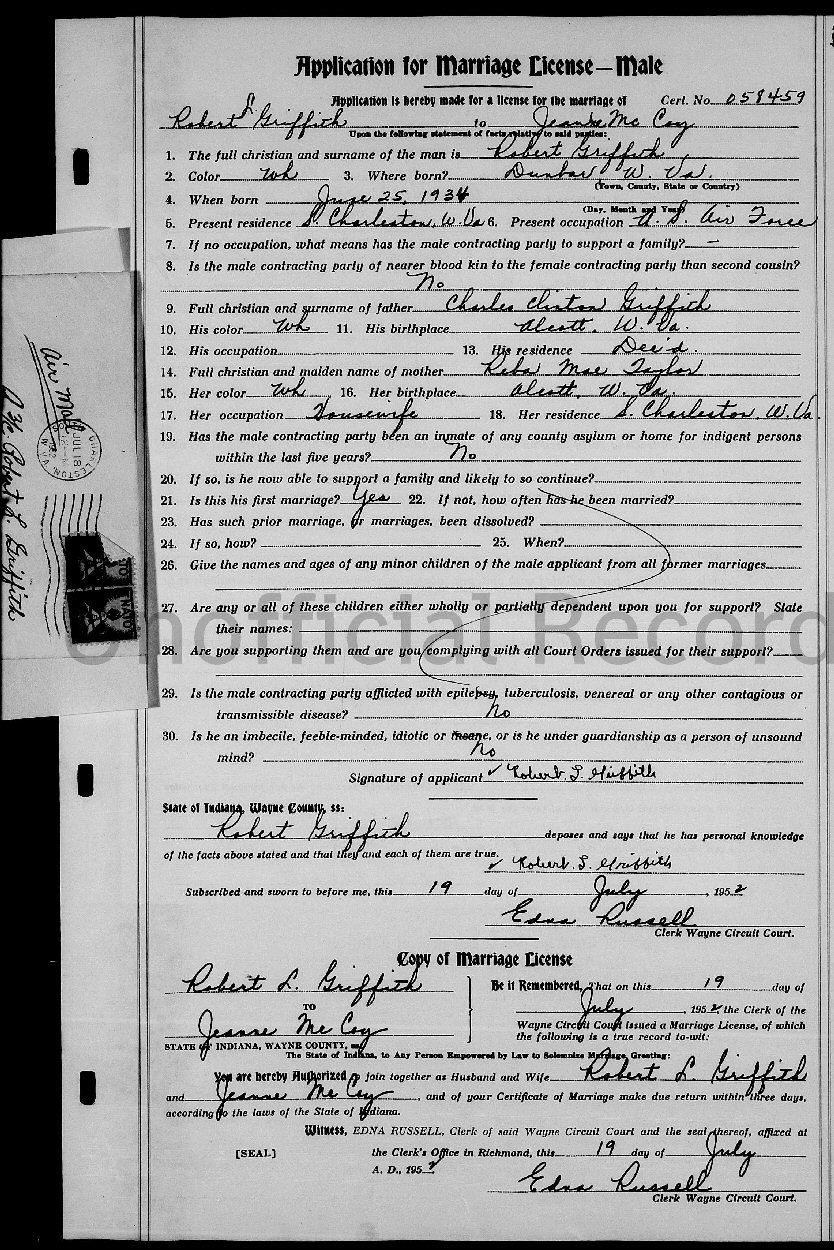 Application for Marriage License—Male
Application is hereby made for a license for the marriage of Cert. No. 058459
Robert L. Griffith to Jeanne Mc Coy
Upon the following statement of facts relative to said parties:
1. The full christian and surname of the man is Robert Griffith
2. Color Wh 3. Where born? Dunbar W. Va.
(Town, County, State or Country)
4. When born June 25, 1934
(Day, Month and Year)
5. Present residence S. Charleston, W. Va 6. Present occupation U. S. Air Force
7. If no occupation, what means has the male contracting party to support a family? —
8. Is the male contracting party of nearer blood kin to the female contracting party than second cousin?
No
9. Full christian and surname of father Charles Clinton Griffith
10. His color Wh 11. His birthplace Alcott, W. Va.
12. His occupation 13. His residence Dec'd.
14. Full christian and maiden name of mother Reba Mae Taylor
15. Her color Wh 16. Her birthplace Alcott, W. Va.
17. Her occupation Housewife 18. Her residence S. Charleston, W. Va.
19. Has the male contracting party been an inmate of any county asylum or home for indigent persons
within the last five years? No
20. If so, is he now able to support a family and likely to so continue?
21. Is this his first marriage? Yes 22. If not, how often has he been married?
23. Has such prior marriage, or marriages, been dissolved?
24. If so, how? 25. When?
26. Give the names and ages of any minor children of the male applicant from all former marriages
27. Are any or all of these children either wholly or partially dependent upon you for support? State
their names:
28. Are you supporting them and are you complying with all Court Orders issued for their support?
29. Is the male contracting party afflicted with epilepsy, tuberculosis, venereal or any other contagious or
transmissible disease? No
30. Is he an imbecile, feeble-minded, idiotic or insane, or is he under guardianship as a person of unsound
mind? No
Signature of applicant ✓ Robert L Griffith
State of Indiana, Wayne County, ss:
Robert Griffith deposes and says that he has personal knowledge
of the facts above stated and that they and each of them are true.
✓ Robert L. Griffith
Subscribed and sworn to before me, this 19 day of July, 1952
Edna Russell
Clerk Wayne Circuit Court.
Copy of Marriage License
Robert L. Griffith
TO
Jeanne Mc Coy
STATE OF INDIANA, WAYNE COUNTY, ss:
Be it Remembered, That on this 19 day of
July, 1952 the Clerk of the
Wayne Circuit Court issued a Marriage License, of which
the following is a true record to-wit:
The State of Indiana, to Any Person Empowered by Law to Solemnize Marriage, Greeting:
You are hereby Authorized to join together as Husband and Wife Robert L. Griffith
and Jeanne Mc Coy, and of your Certificate of Marriage make due return within three days,
according to the laws of the State of Indiana.
Witness, EDNA RUSSELL, Clerk of said Wayne Circuit Court and the seal thereof, affixed at
[SEAL] the Clerk's Office in Richmond, this 19 day of July
A. D., 1952
Edna Russell
Clerk Wayne Circuit Court.
Air Mail
Robert L. Griffith
CHARLESTON
W. VA.
JUL 18
Unofficial Record